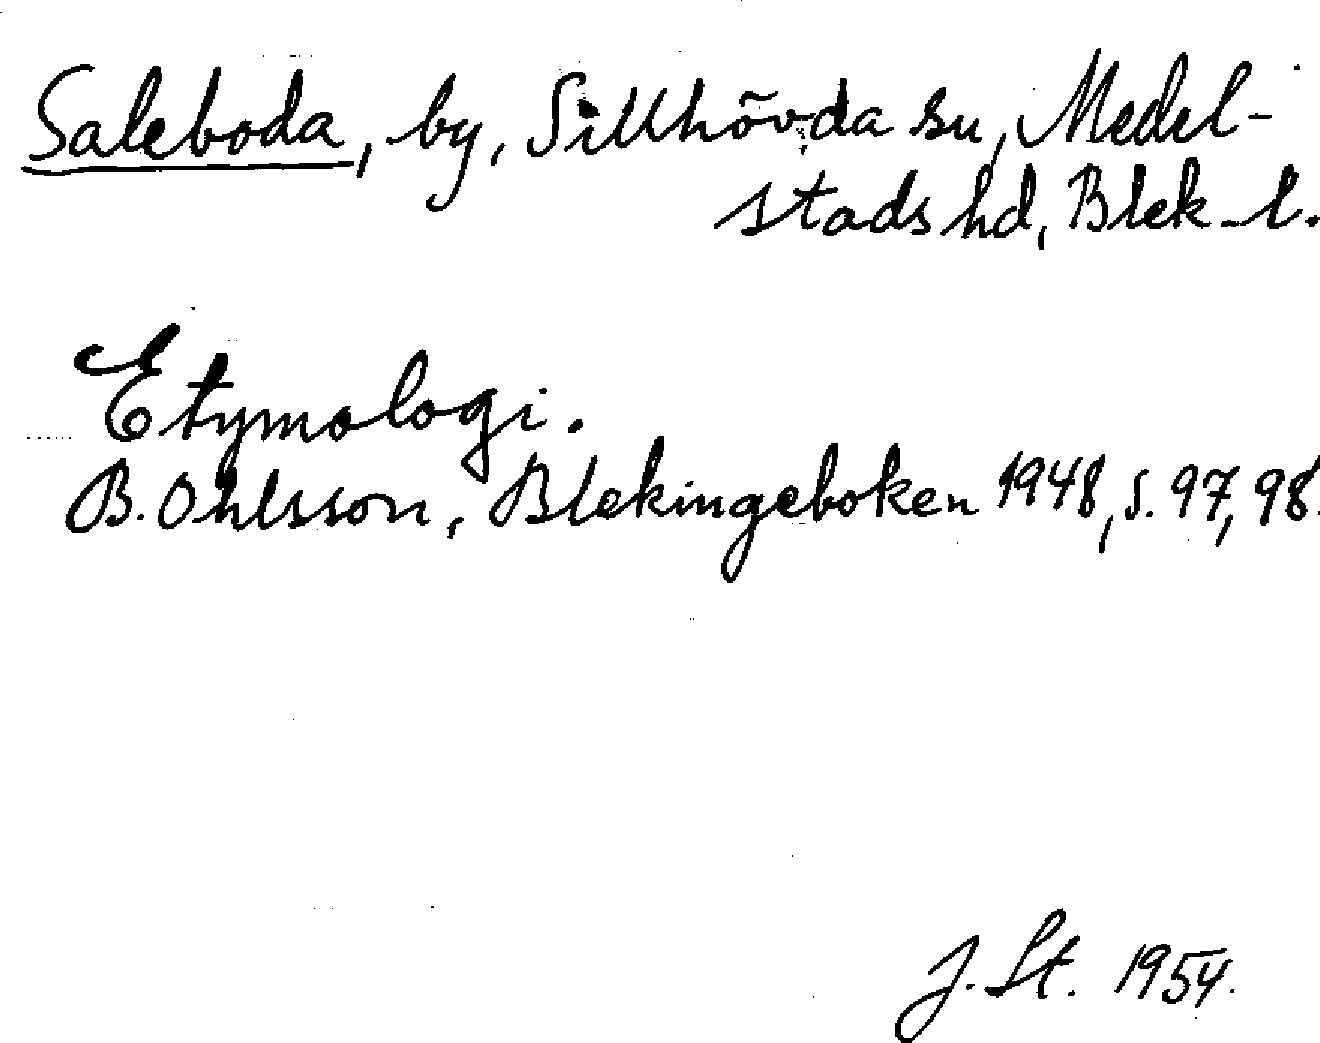 Saleboda, by, Sillhövda sn, Medel-
stads hd, Blek. l.
Etymologi.
B. Ohlsson, Blekingeboken 1948, s. 97, 98.
J. St. 1954.